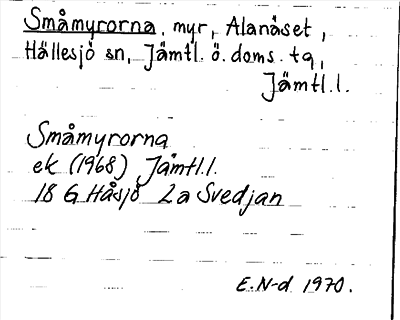 Småmyrorna, myr, Alanäset,
Hällesjö sn, Jämtl. ö. doms. tg,
Jämtl.l.
Småmyrorna
ek (1968) Jämtl.l.
18 G Håsjö 2a Svedjan
E.N-d 1970.